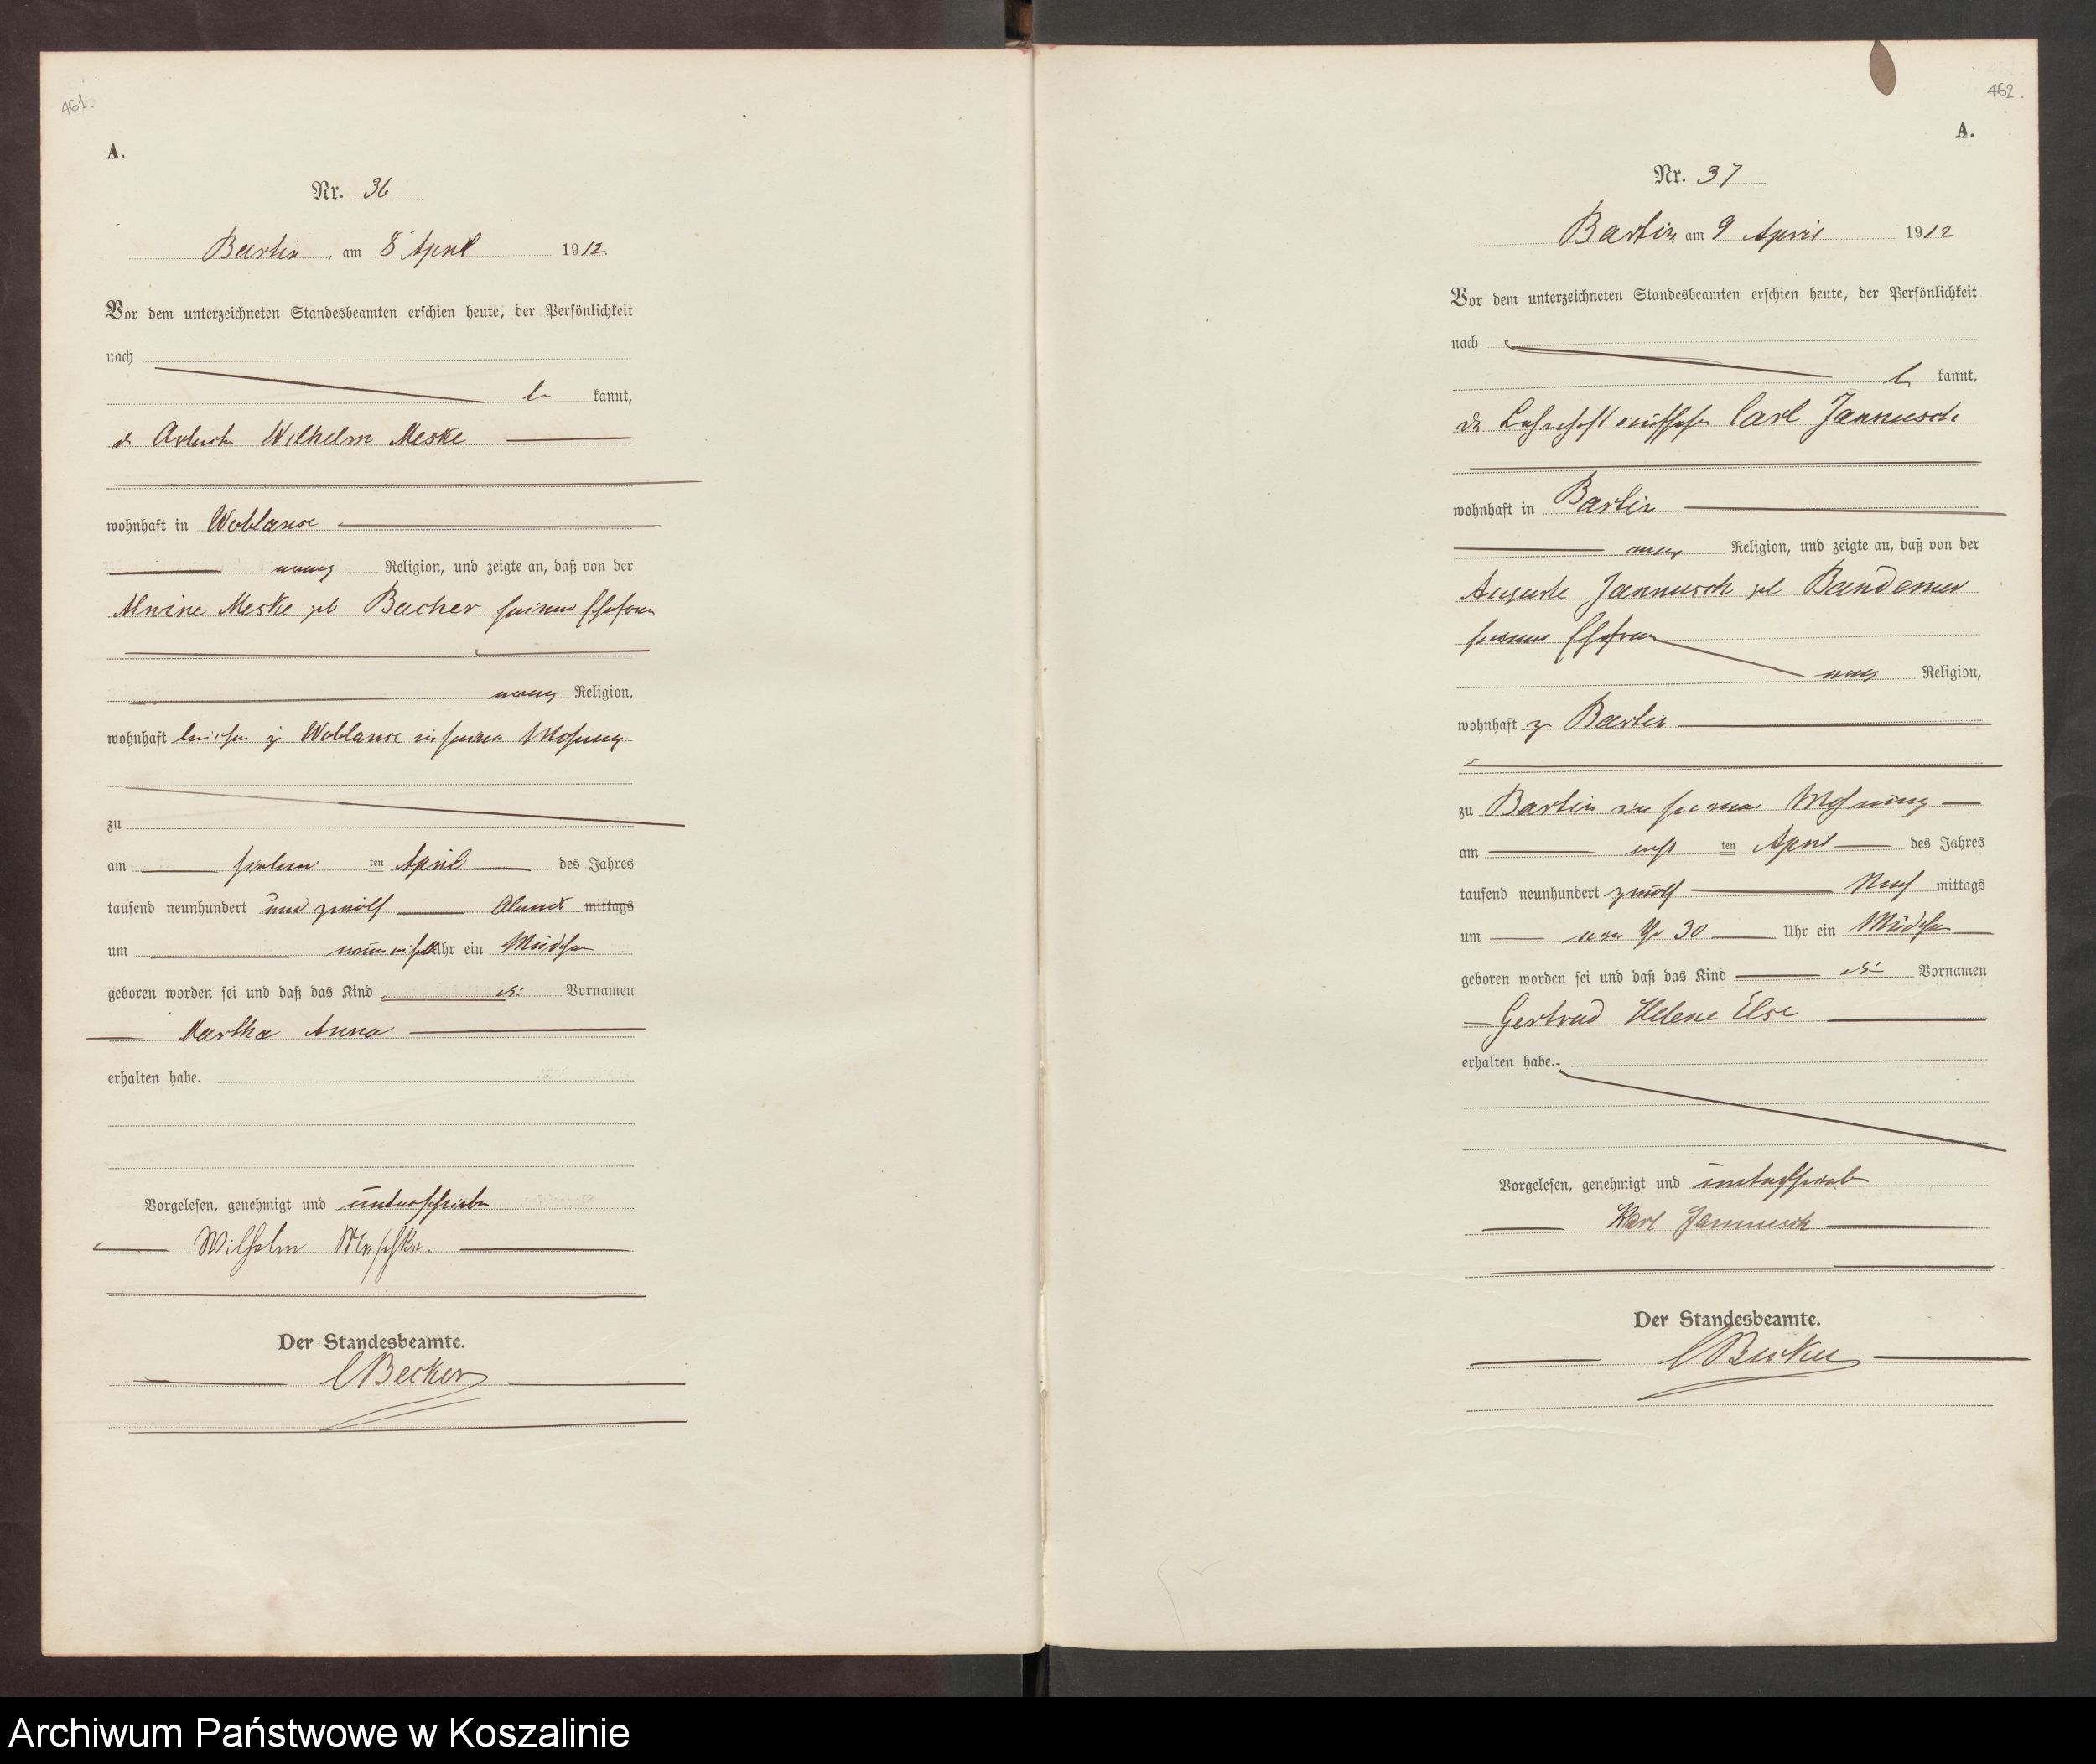 461.
A.
Nr. 36
Bartin, am 8 April 1912.
Vor dem unterzeichneten Standesbeamten erschien heute, der Persönlichkeit
nach
be kannt,
der Arbeiter Wilhelm Meske
wohnhaft in Woblanse
evang Religion, und zeigte an, daß von der
Meske geb Bacher seiner Ehefrau
evang Religion,
wohnhaft bei ihm zu Woblanse in seiner Wohnung
zu
am sieben ten April des Jahres
tausend neunhundert und zwölf Abends mittags
um Uhr ein Mädchen
geboren worden sei und daß das Kind die Vornamen
Martha Anna
erhalten habe.
Vorgelesen, genehmigt und unterschrieben
Wilhelm
Der Standesbeamte.
CBecker
462.
A.
Nr. 37
Bartin am 9 April 1912
Vor dem unterzeichneten Standesbeamten erschien heute, der Persönlichkeit
nach
be kannt,
der Carl Jannusch
wohnhaft in Bartin
evang Religion, und zeigte an, daß von der
Auguste Jannusch geb Bandemer
seiner Ehefrau
evang Religion,
wohnhaft zu Bartin
zu Bartin in seiner Wohnung
am acht ten April des Jahres
tausend neunhundert zwölf Nach mittags
um 30 Uhr ein Mädchen
geboren worden sei und daß das Kind die Vornamen
Gertrud Helene Else
erhalten habe.
Vorgelesen, genehmigt und unterschrieben
Karl Jannusch
Der Standesbeamte.
CBecker
Archiwum Państwowe w Koszalinie